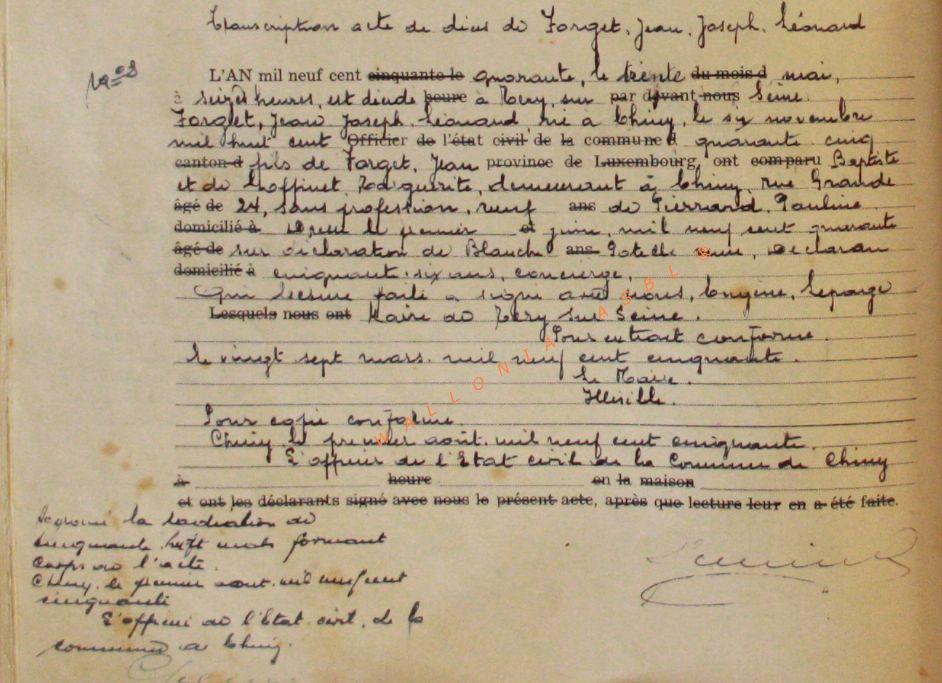 Transcription acte de décès de Forget, Jean, Joseph, Léonard
N° 8
L'AN mil neuf cent cinquante le quarante, le trente du mois d mai,
à seize heures, est décédé heure à Méry, sur par devant nous Seine
Forget, Jean Joseph Léonard né à Chiny, le six novembre
mil huit cent Officier de l'état civil de la commune d quarante cinq
canton d fils de Forget, Jean province de Luxembourg, ont comparu Baptiste
et de Goffinet, Marguerite, demeurant à Chiny, rue Grande
âgé de 24, sans profession, veuf ans de Pierrard, Pauline
domicilié à le premier et juin, mil neuf cent quarante
âgé de sur déclaration de Blanche ans
domicilié à cinquante-six ans, concierge,
Qui lecture faite a signé avec nous, Eugène, Lepage
Lesquels nous ont Maire de Méry sur Seine.
Pour extrait conforme.
le vingt sept mars, mil neuf cent cinquante.
Le Maire.
Illisible.
Pour copie conforme
Chiny, le premier août, mil neuf cent cinquante.
L'officier de l'Etat civil de la Commune de Chiny
à heure en la maison
et ont les déclarants signé avec nous le présent acte, après que lecture leur en a été faite.
Approuvé la radiation de
cinquante huit mots formant
corps de l'acte.
Chiny, le premier août, mil neuf cent
cinquante
L'officier de l'Etat civil, de la
commune de Chiny.
WALLONIA ASBL